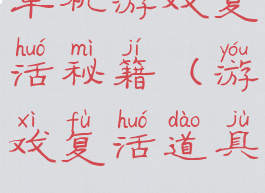 单机游戏复
huó mì jí yóu
活秘籍（游
xì fù huó dào jù
戏复活道具